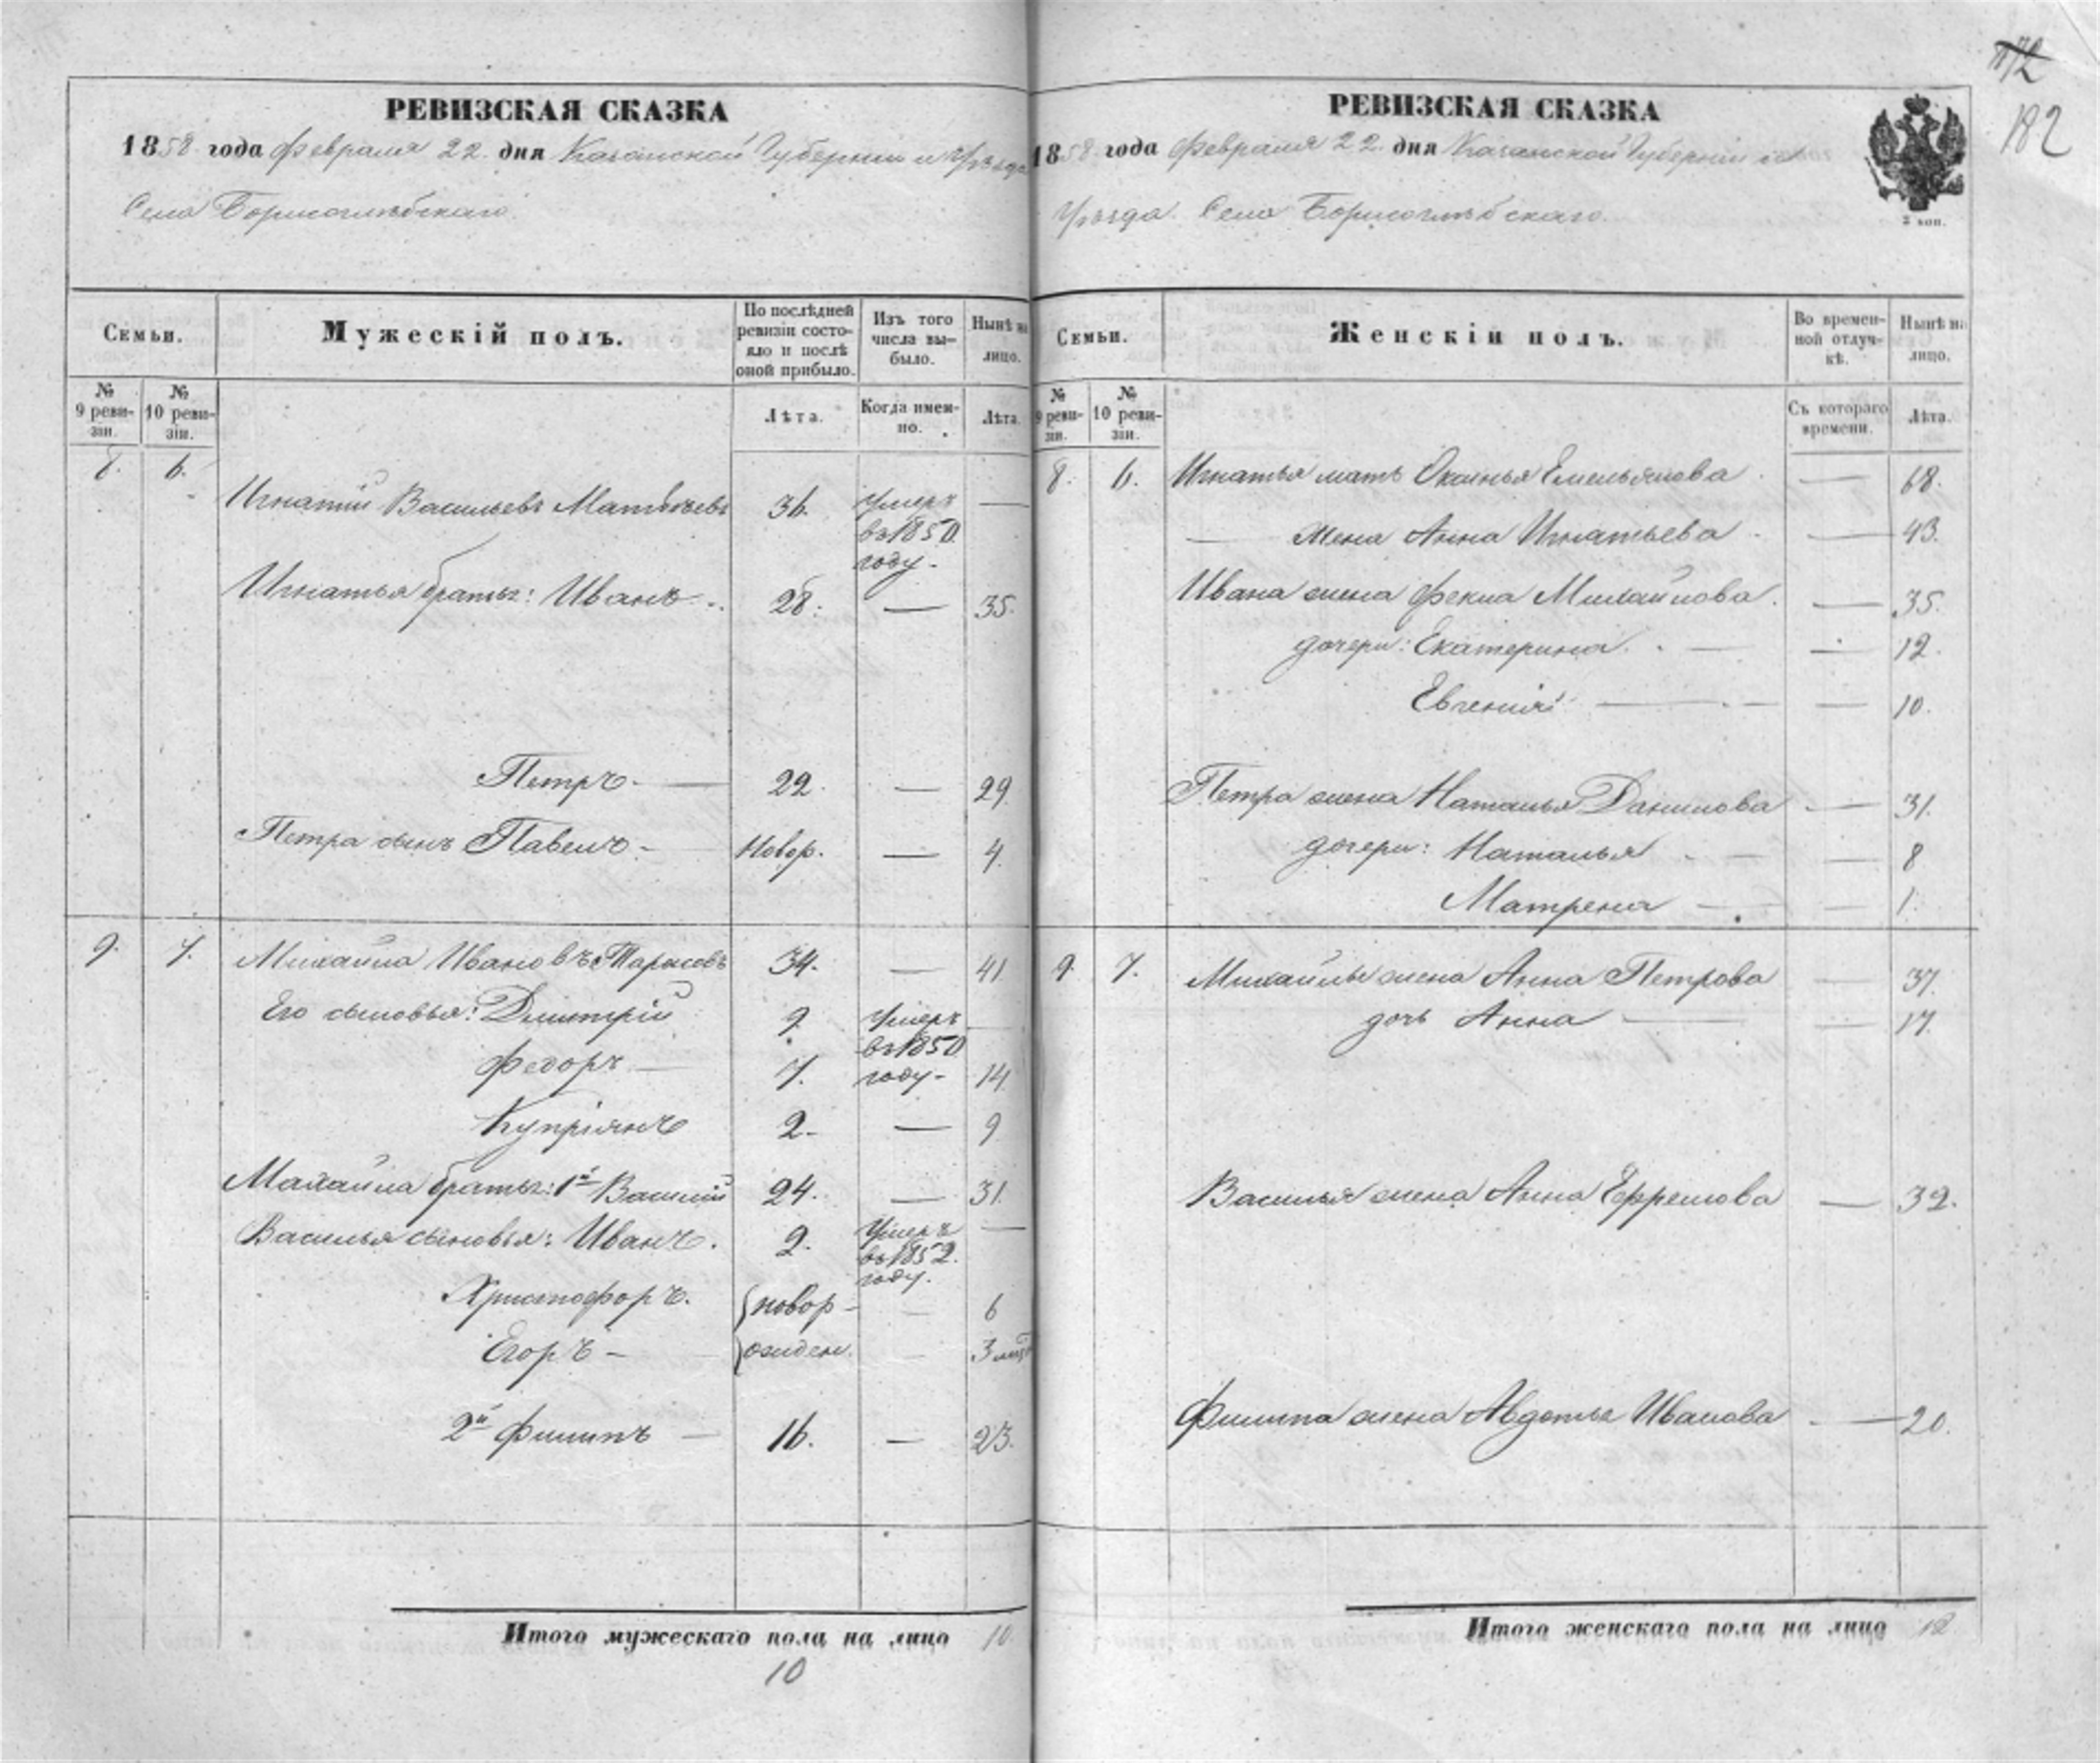 172
182
РЕВИЗСКАЯ СКАЗКА
1858 года Февраля 22 дня Казанской Губернии и Уѣзда
Села Борисоглѣбскаго.
Семьи.
Мужескій полъ.
По послѣдней ревизіи состояло и послѣ оной прибыло.
Изъ того числа выбыло.
Нынѣ на лицо.
№ 9 ревизіи.
№ 10 ревизіи.
Лѣта.
Когда именно.
Лѣта.
8. 6.
Игнатій Васильевъ Матвѣевъ 36. Умеръ въ 1850 году. —
Игнатья братья: Иванъ 28. — 35.
Петръ. — 22. — 29
Петра сынъ Павелъ. — Новор. — 4.
9. 7. Михайла Ивановъ Тарасовъ 34. — 41
Его сыновья: Дмитрій 9 Умеръ въ 1850 году. —
Федоръ — 7. 14
Купріянъ 2. — 9
Михайла братья: 1й Василій 24. — 31.
Василья сыновья: Иванъ. 2. Умеръ въ 1852 году. —
Христофоръ. новор- — 6
Егоръ — ожден. — 3 мѣс
2й Филипъ — 16. — 23.
Итого мужескаго пола на лицо 10.
10
РЕВИЗСКАЯ СКАЗКА
1858 года Февраля 22 дня Казанской Губерніи и
Уѣзда. Села Борисоглѣбскаго.
3 коп.
Семьи.
Женскій полъ.
Во временной отлучкѣ.
Нынѣ на лицо.
№ 9 ревизіи.
№ 10 ревизіи.
Съ котораго времени.
Лѣта.
8. 6. Игнатья мать Оксинья Емельянова — 68.
— жена Анна Игнатьева — 43.
Ивана жена Фекла Михайлова — 35.
дочери: Екатерина — 12.
Евгенія — 10.
Петра жена Наталья Данилова — 31.
дочери: Наталья — 8
Матрена — 1.
9. 7. Михайлы жена Анна Петрова — 37.
дочь Анна — 17.
Василья жена Анна Ефремова — 32.
Филипа жена Авдотья Иванова — 20.
Итого женскаго пола на лицо 12